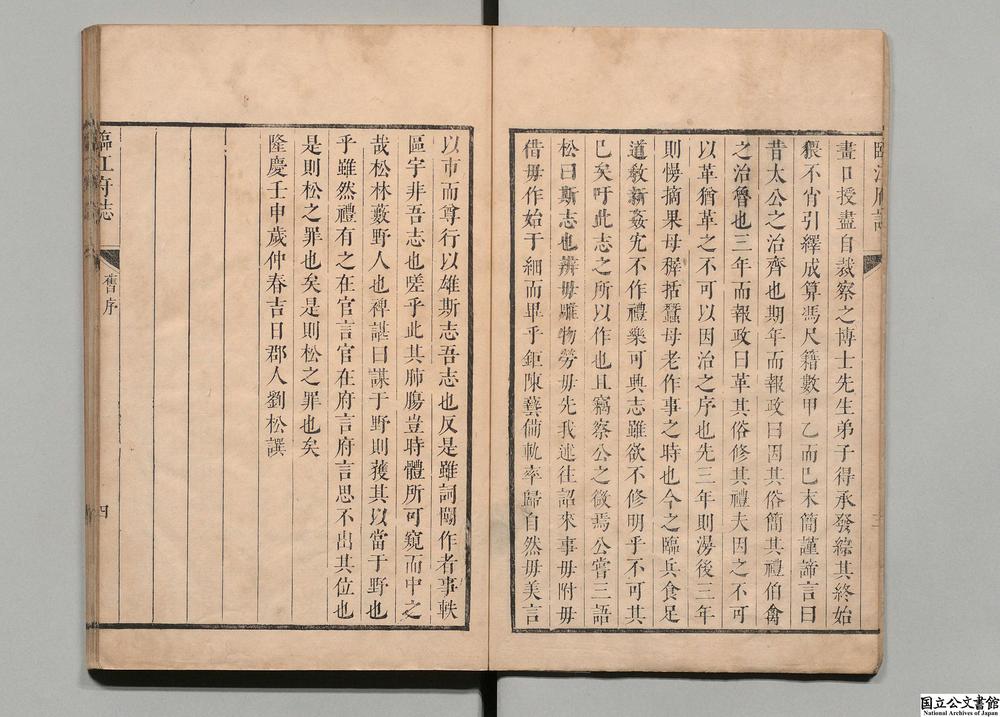 畫口授盡自裁察之博士先生弟子得承發綜其終始
猥不肖引繹成算馮尺籍數甲乙而已末簡謹諦言曰
昔太公之治齊也期年而報政曰因其俗簡其禮伯禽
之治魯也三年而報政曰革其俗修其禮夫因之不可
以革猶革之不可以因治之序也先三年則湯後三年
則愓摘果毋穉括蠶毋老作事之時也今之臨兵食足
道教新姦宄不作禮樂可典志雖欲不修明乎不可其
已矣吁此志之所以作也且竊察公之微焉公嘗三語
松曰斯志也辨毋雕物勞毋先我述往詔來事毋附毋
借毋作始于細而畢乎鉅陳藝備軌率歸自然毋美言
以市而尊行以雄斯志吾志也反是雖詞闊作者事軼
區宇非吾志也嗟乎此其肺膓豈時體所可窺而中之
哉松林藪野人也裨諶曰謀于野則獲其以當于野也
乎雖然禮有之在官言官在府言府言思不出其位也
是則松之罪也矣是則松之罪也矣
隆慶壬申歲仲春吉日郡人劉松譔
臨江府志
舊序
四
国立公文書館
National Archives of Japan